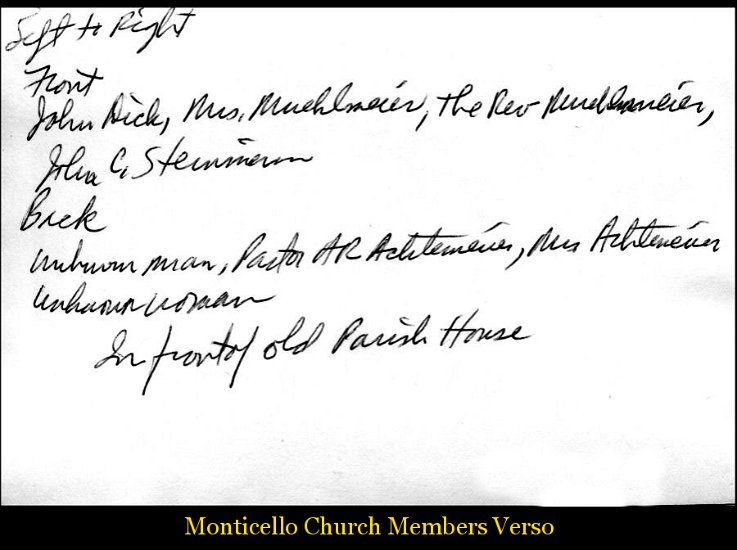 Left to Right
Front
John Dick, Mrs. Muehlmeier, the Rev Muehlmeier,
John C. Steinmann
Back
unknown man, Pastor AR Achtemeier, Mrs Achtemeier
unknown woman
In front of old Parish House
Monticello Church Members Verso